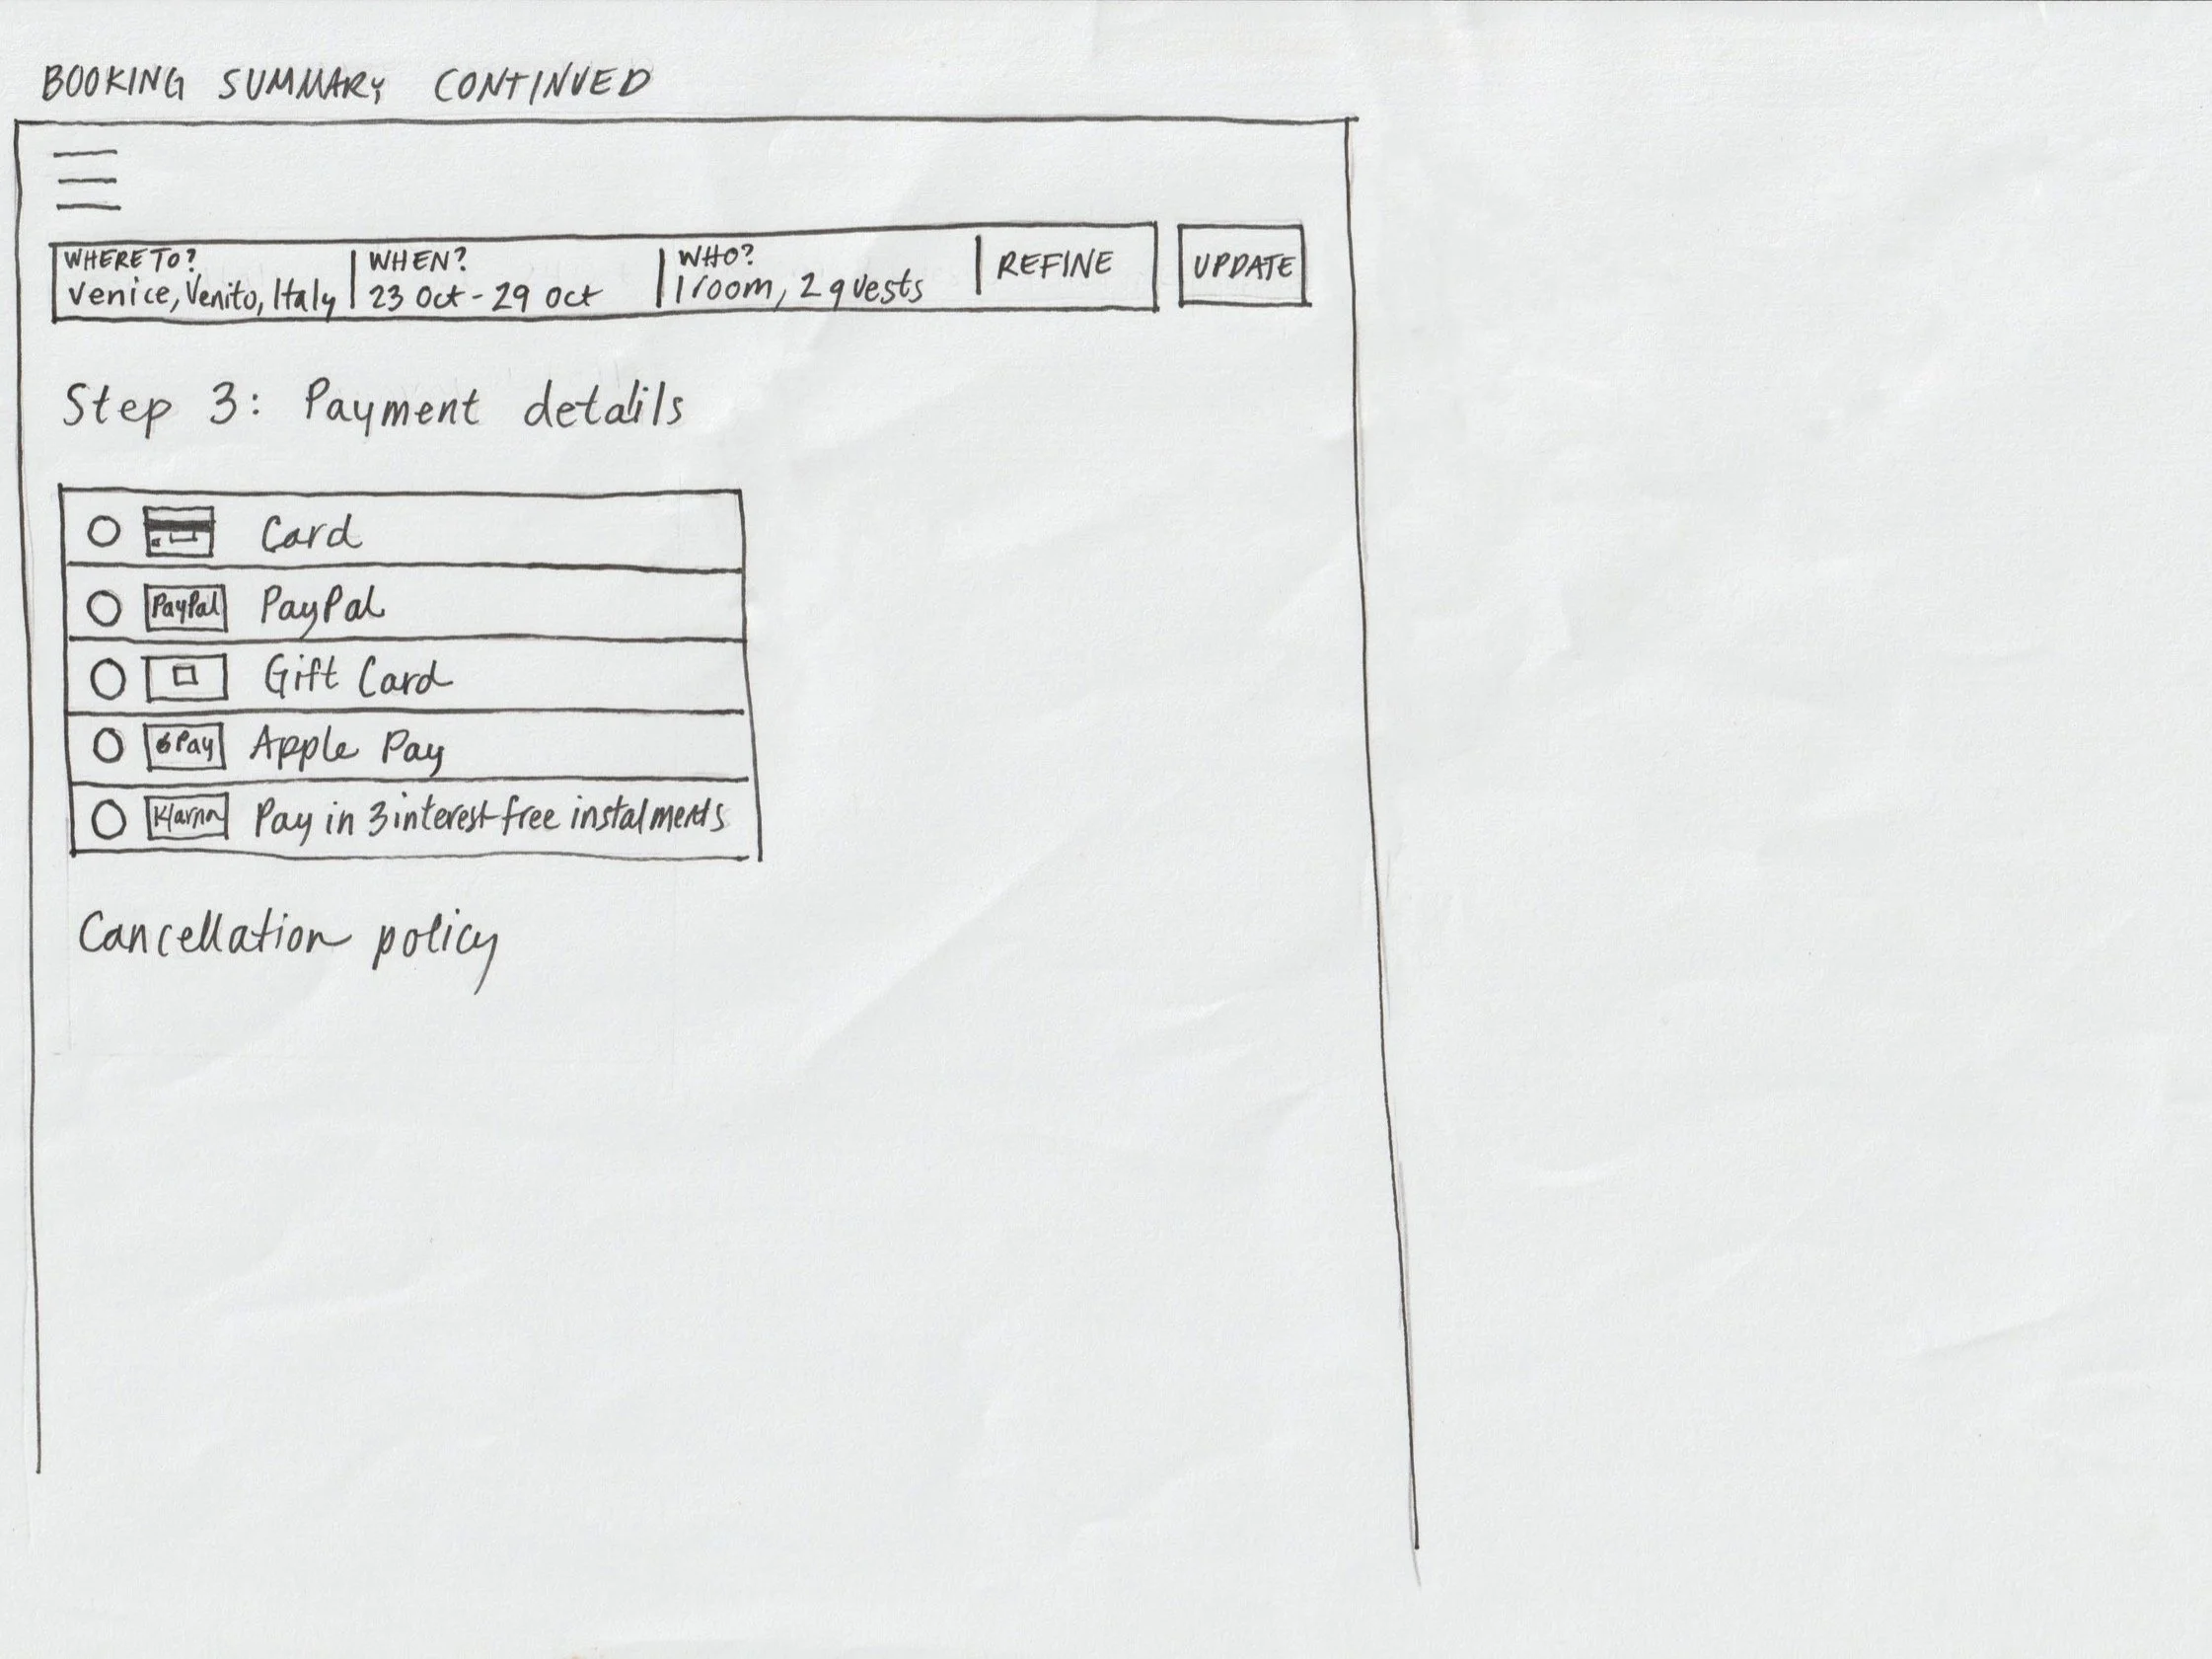 BOOKING SUMMARY CONTINUED
WHERE TO? WHEN? WHO? REFINE UPDATE
Venice, Venito, Italy 23 Oct - 29 Oct 1 room, 2 guests
Step 3: Payment details
Card
PayPal PayPal
Gift Card
Pay Apple Pay
Klarna Pay in 3 interest free instalments
Cancellation policy